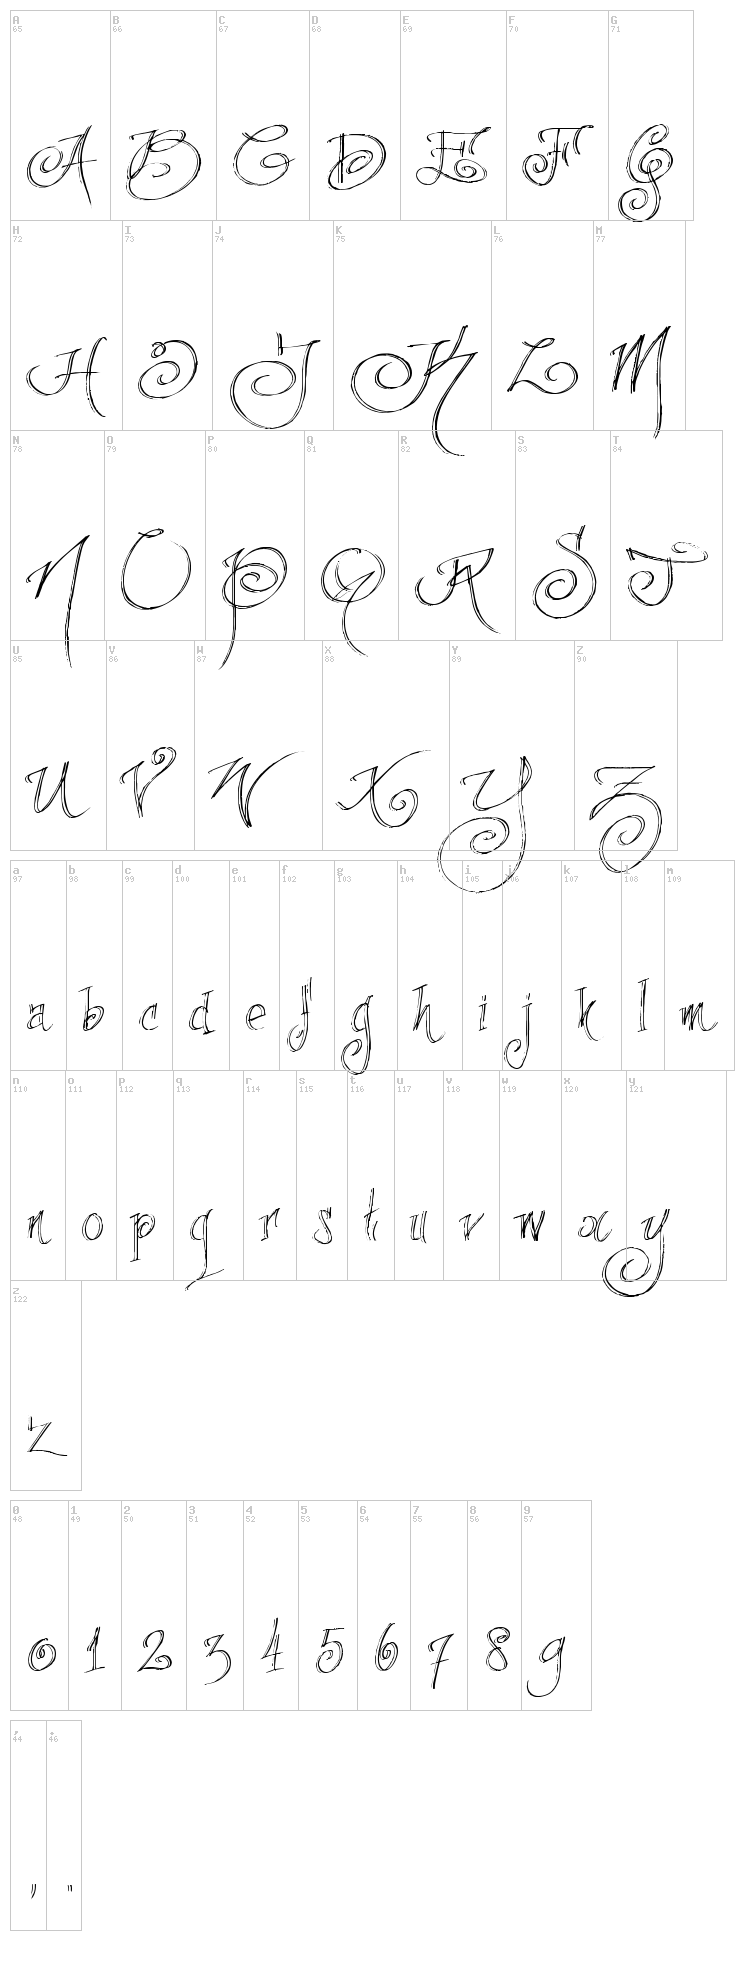 A B C D E F G
65 66 67 68 69 70 71
A B C D E F G
H I J K L M
72 73 74 75 76 77
H I J K L M
N O P Q R S T
78 79 80 81 82 83 84
N O P Q R S T
U V W X Y Z
85 86 87 88 89 90
U V W X Y Z
a b c d e f g h i j k l m
97 98 99 100 101 102 103 104 105 106 107 108 109
a b c d e f g h i j k l m
n o p q r s t u v w x y
110 111 112 113 114 115 116 117 118 119 120 121
n o p q r s t u v w x y
z
122
z
0 1 2 3 4 5 6 7 8 9
48 49 50 51 52 53 54 55 56 57
0 1 2 3 4 5 6 7 8 9
, .
44 46
, .